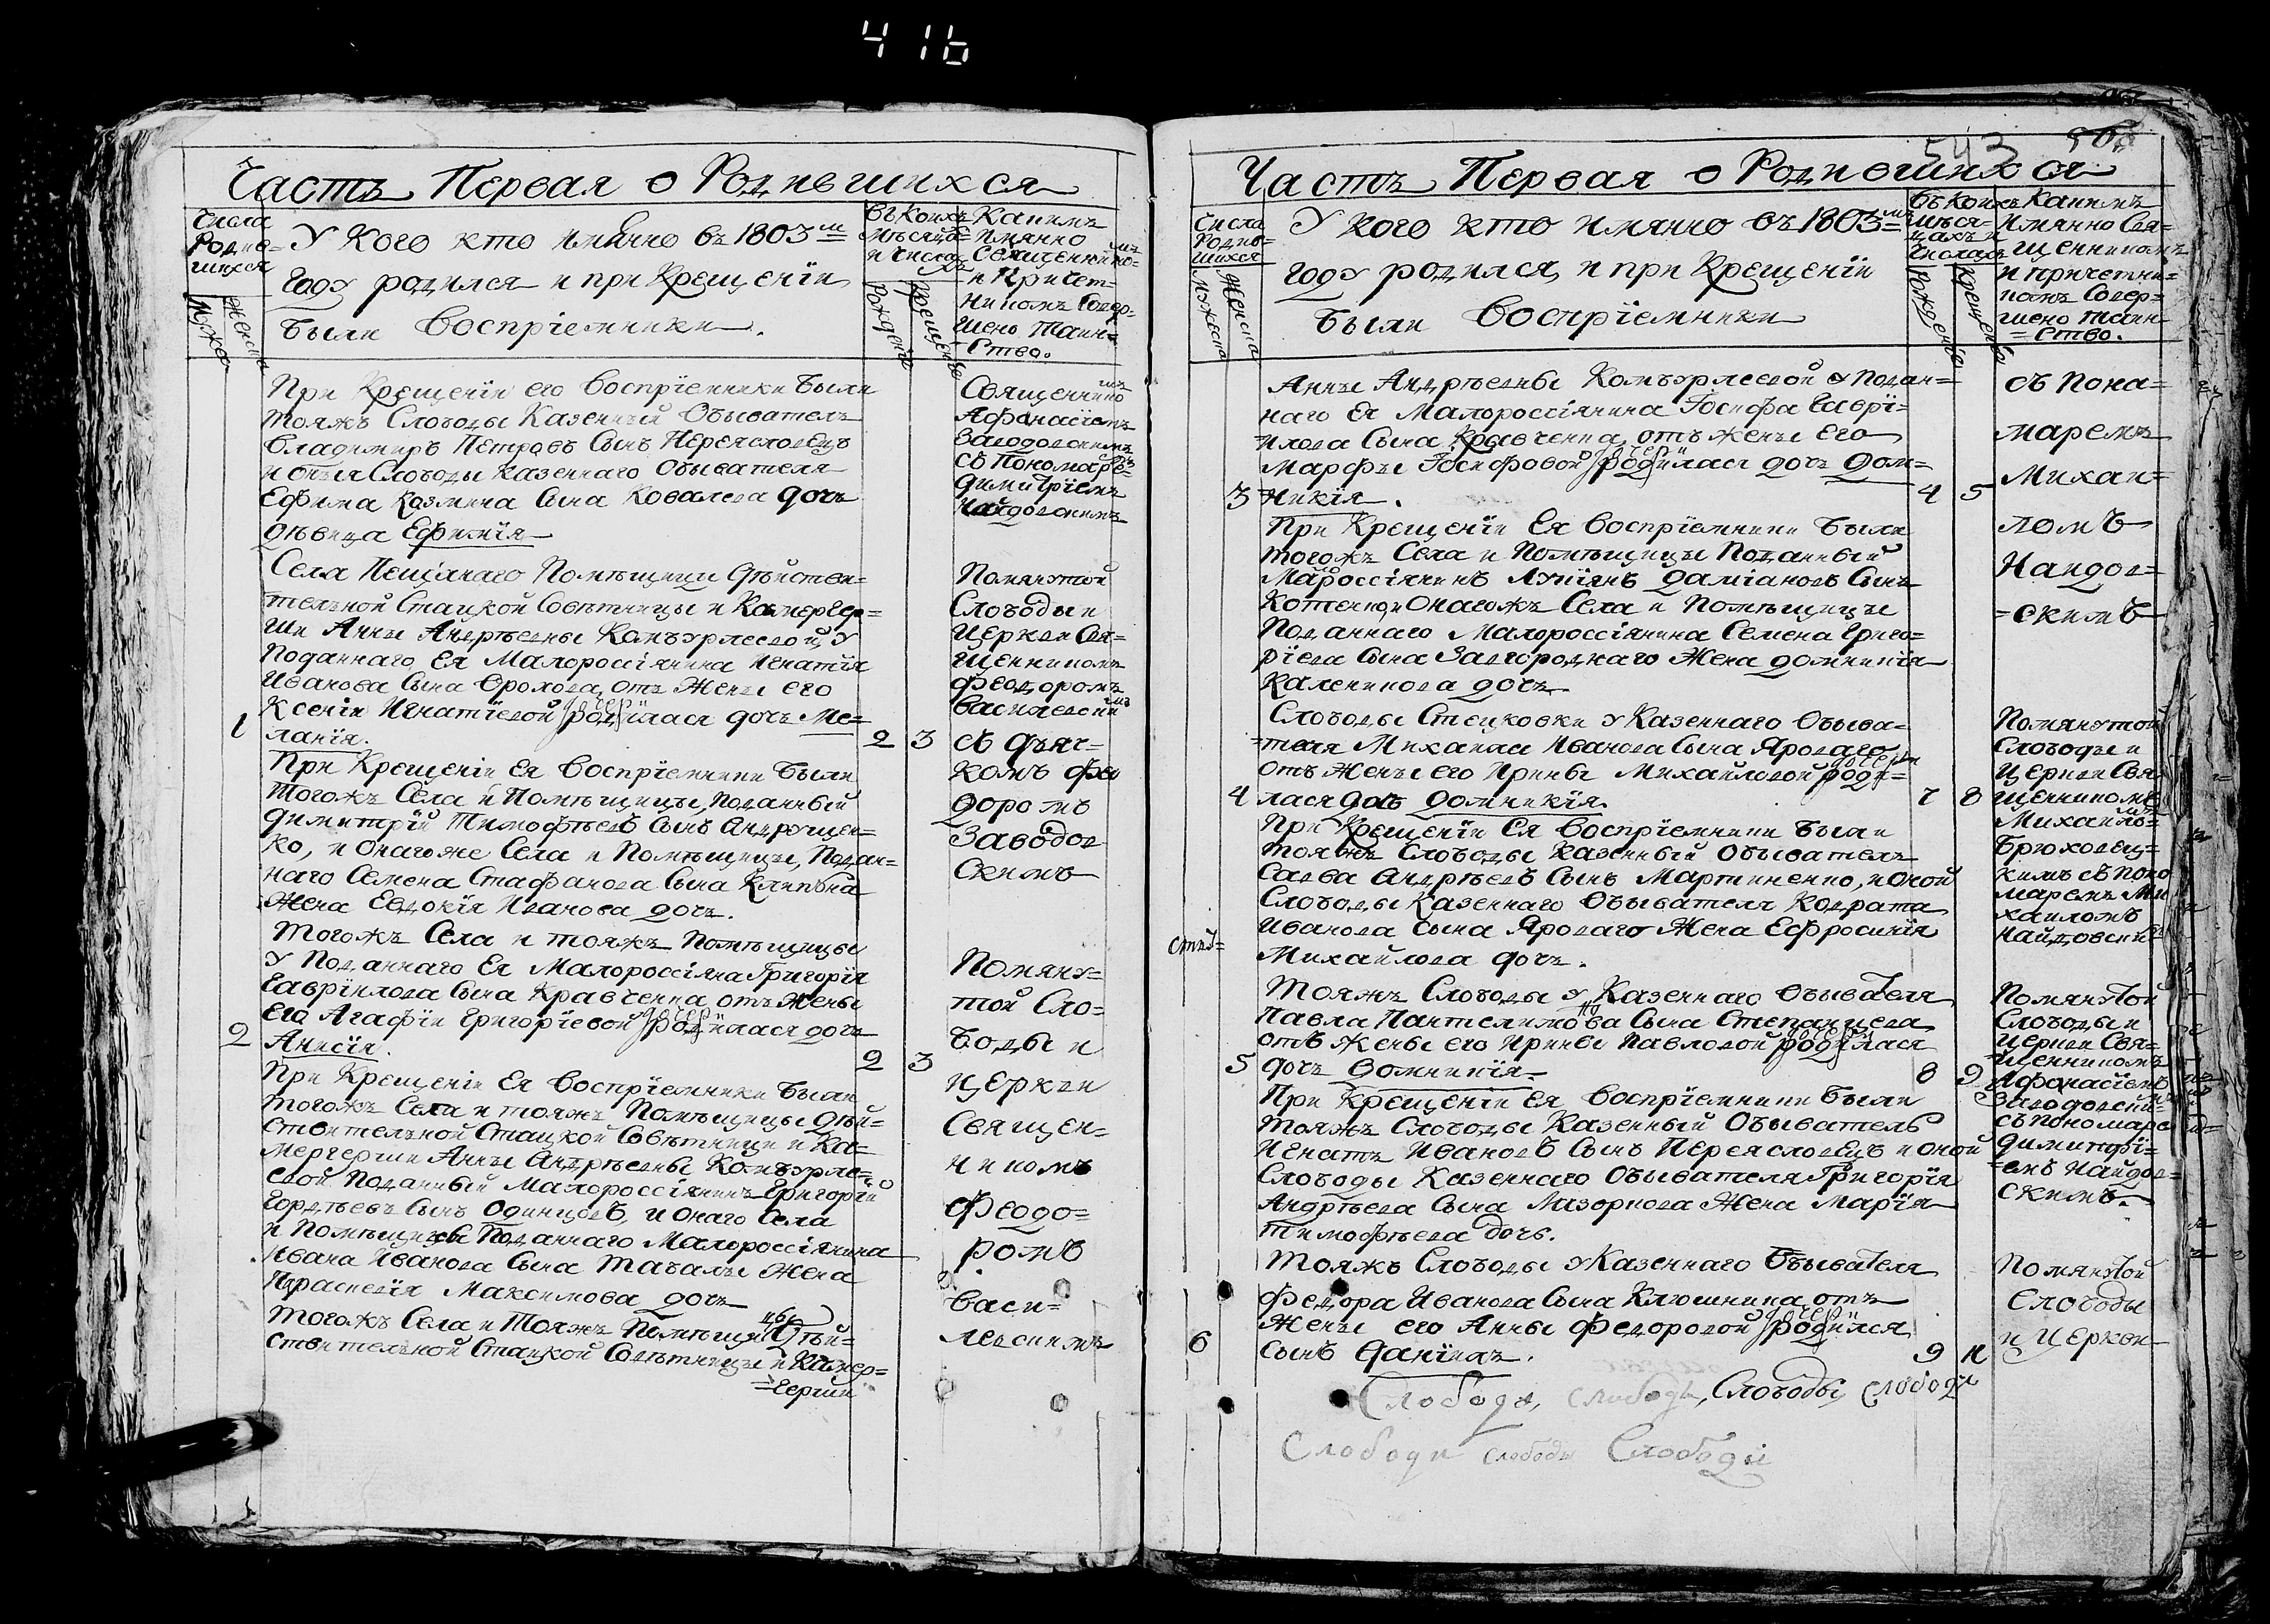 416
Часть Первая о Родившихся
Числа Родив=шихся
Мужеска
Женска
У кого кто имянно въ 1803м
Году родился и при Крещеніи
были Воспріемники.
Въ Коихъ мѣсяца и числа
Рожденіе
Крещеніе
Какимъ имянно Священником и Причет=никомъ Совер=шено Таин=ство.
При Крещеніи его Воспріемники были
тояжъ Слободы Казенный Обыватель
Владимиръ Петровъ Сынъ Переясловецъ
и онъя Слободы Казеннаго Обывателя
Ефима Козмина Сына Ковалева дочь
дѣвица Ефимія
Священнико
Афанасіемъ
Заводовскимъ
съ Пономаре=
Димитріемъ
Найдовскимъ
Села Пещанаго Помѣщици Дѣйстви=
тельной Стацкой Совѣтницы и Камергер=
ши Анны Андрѣевны Комъурлеевой, У
поданнаго Ея Малороссіянина Игнатія
Иванова Сына Ворохова, отъ Жены его
Ксеніи Игнатіевой родилася дочь Ме=
1 ланія. 2 3
Помянутой
Слободы и
Церкви Свя=
щенникомъ
Феодоромъ
Василевски
съ Дьяч=
комъ Фео
доромъ
Заводов
скимъ
При Крещеніи Ея Воспріемники были
Тогожъ Села и Помѣщицы, поданный
Димитрій Тимофѣевъ Сынъ Андрущен=
ко, и онагоже Села и Помѣщицы, Подан=
наго Семена Стафанова Сына Клипына
Жена Евдокія Иванова дочь.
Тогожъ Села и тояжъ Помѣщицы
У Поданнаго Ея Малороссіяна Григорія
Гавріилова Сына Кравченка, отъ Жены
его Агафіи Григоріевой родилася дочь
2 Анисія. 2 3
Помяну=
той Сло=
боды и
церкви
Священ=
никомъ
Феодо=
ромъ
Васи=
левскимъ
При Крещеніи Ея Воспріемники были
тогожъ Села и тояжъ Помѣщицы Дѣй=
ствительной Стацкой Совѣтници и Ка=
мергерши Анны Андрѣевны Комъурле=
евой Поданный Малороссіянинъ Григорій
Гордѣевъ Сынъ Одинцовъ, и онаго Села
и Помѣщицы Поданнаго Малороссіянина
Ивана Иванова Сына Табалы Жена
Параскевія Максимова дочь
Тогожъ Села и Тояжъ Помѣщицы Дѣй=
ствительной Стацкой Совѣтницы и Камер=
=герши
543
Часть Первая о Родившихся
Числа Родив=шихся
Мужеска
Женска
У кого кто имянно въ 1803мъ
Году родился, и при Крещеніи
были Воспріемники
Въ Коихъ мѣся=цахъ и Числахъ
Рожденіе
Крещеніе
Какимъ имянно Свя=щенникомъ и причетни=комъ Совер=шено таин=ство.
Анны Андрѣевны Комъурлеевой У подан=
наго Ея Малороссіянина Іосифа Гаврі=
илова Сына Кравченка, отъ жены его
Марфы Іосифовой родилася дочь Дом=
3 никія. 4 5
съ Пона=
маремъ
Михаи=
ломъ
Найдов=
=скимъ
При Крещеніи Ея Воспріемники были
тогожъ Села и Помѣщицы Поданный
Маросіянинъ Лукіянъ Даміановъ Сынъ
Котенко, и Онагожъ Села и Помѣщицы
Поданнаго Малороссіянина Семена Григо=
ріева Сына Завгороднаго Жена Домникія
Каленикова дочь
Слободы Стецковки У Казеннаго Обыва=
=теля Михаила Иванова Сына Яроваго
отъ Жены его Ирины Михайловой роди=
4 лася дочь Домникія. 7 8
Помянутой
Слободы и
Церкви Свя
щенникомъ
Михаило=
Брюховец=
кимъ съ Поно
маремъ Ми
хаиломъ
Найдовски
При Крещеніи Ея Воспріемники были
тояжъ Слободы Казенный Обыватель
Савва Андрѣевъ Сынъ Мартиненко, и оной
Слободы Казеннаго Обывателя Кодрата
Иванова Сына Яроваго Жена Ефросинія
Михайлова дочь.
Тояжъ Слободы У Казеннаго Обывателя
Павла Пантелимонова Сына Степанцева
отъ жены его Ирины Павловой родилася
5 дочь Домникія. 8 9
Помянутой
Слободы и
Церкви Свя=
щенникомъ
Афонасіемъ
Заводовски=
съ пономаре
Димитрі=
=емъ Найдов=
скимъ.
При Крещеніи Ея Воспріемники были
тояжъ Слободы Казенный Обыватель
Игнатъ Ивановъ Сынъ Переясловецъ и оной
Слободы Казеннаго Обывателя Григорія
Андрѣева Сына Мазоркова Жена Марія
Тимофѣева дочь.
Тояжъ Слободы У Казеннаго Обывателя
Федора Иванова Сына Клюшника, отъ
Жены его Анны Федоровой родился
6 Сынъ Даніилъ. 9 11
Помянутой
Слободы
и Церкви
Слободы, Слободы, Слободы, Слободы
Слободи Слободы Слободи